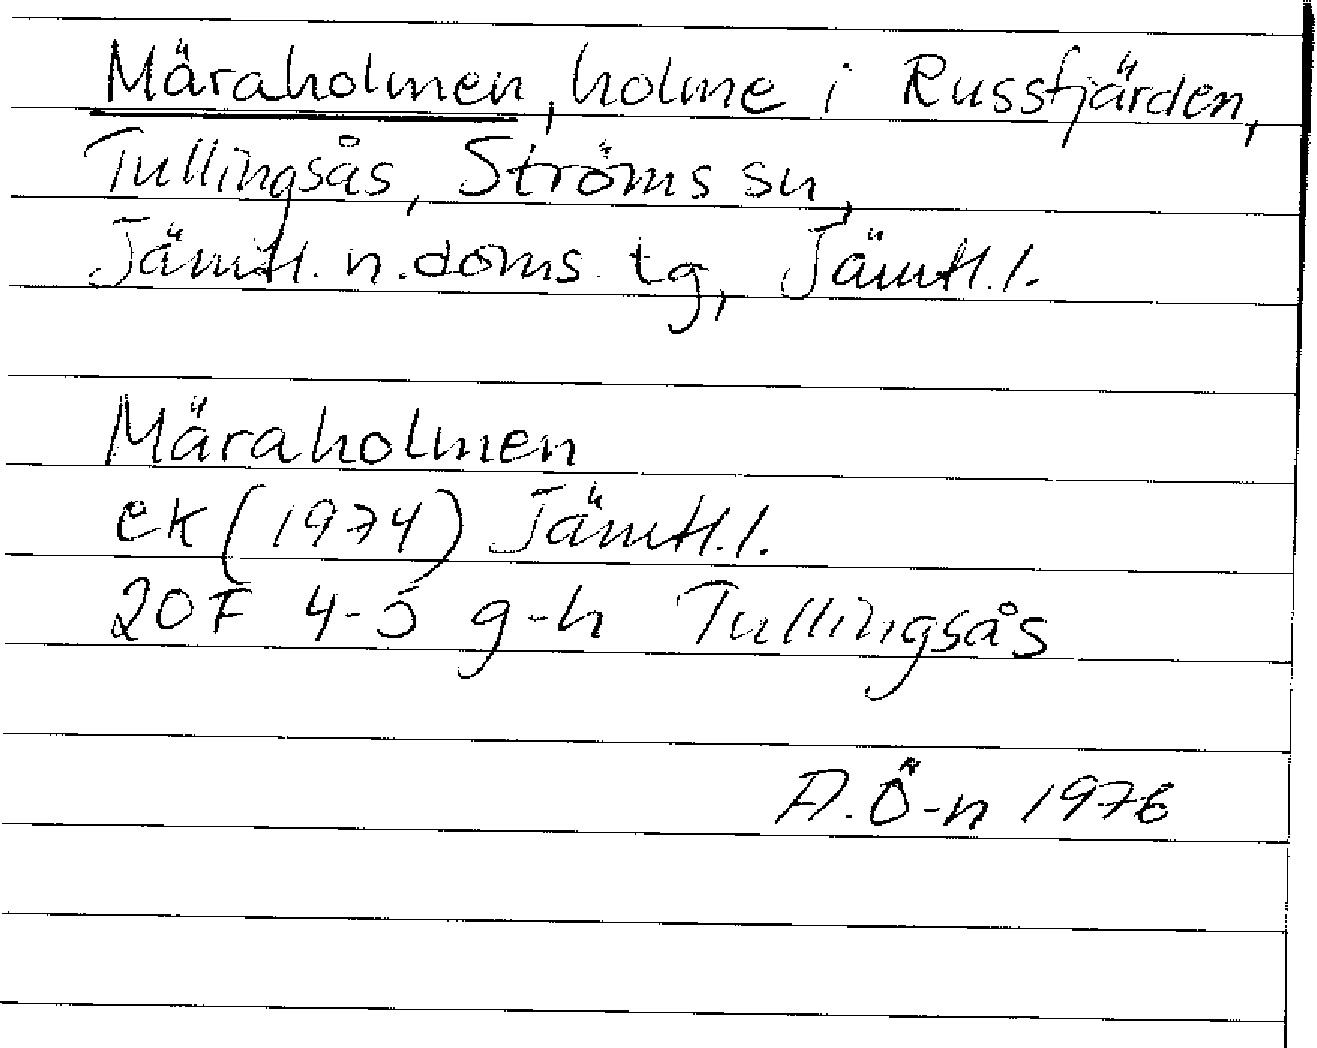 Märaholmen, holme i Russfjärden,
Tullingsås, Ströms sn,
Jämtl. n. doms. tg, Jämtl. l.
Märaholmen
ek (1974) Jämtl. l.
20F 4-5 g-h Tullingsås
A. Ö-n 1976